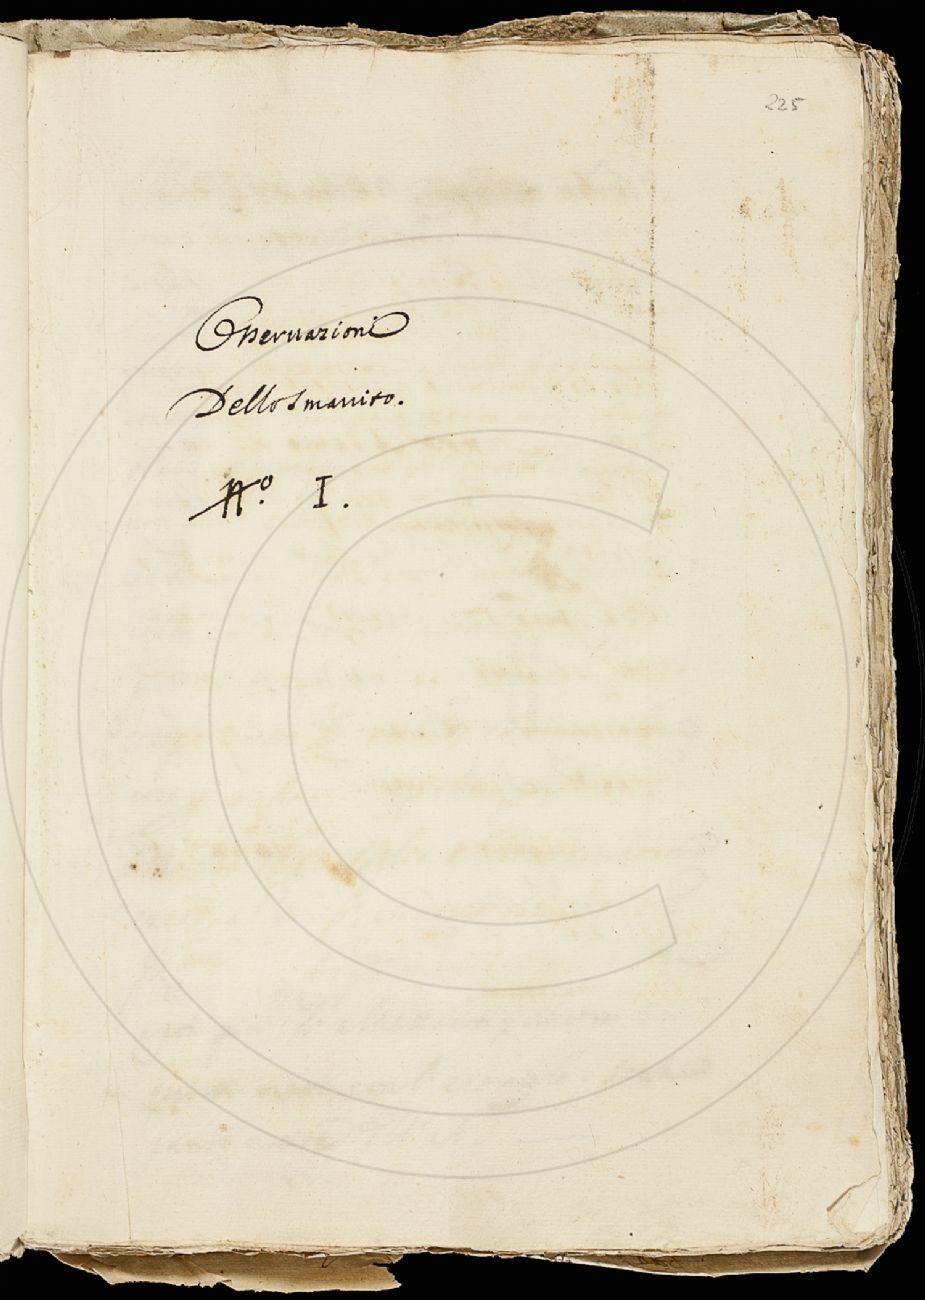 225
Osseruazioni
Dello Smarrito.
No. I.